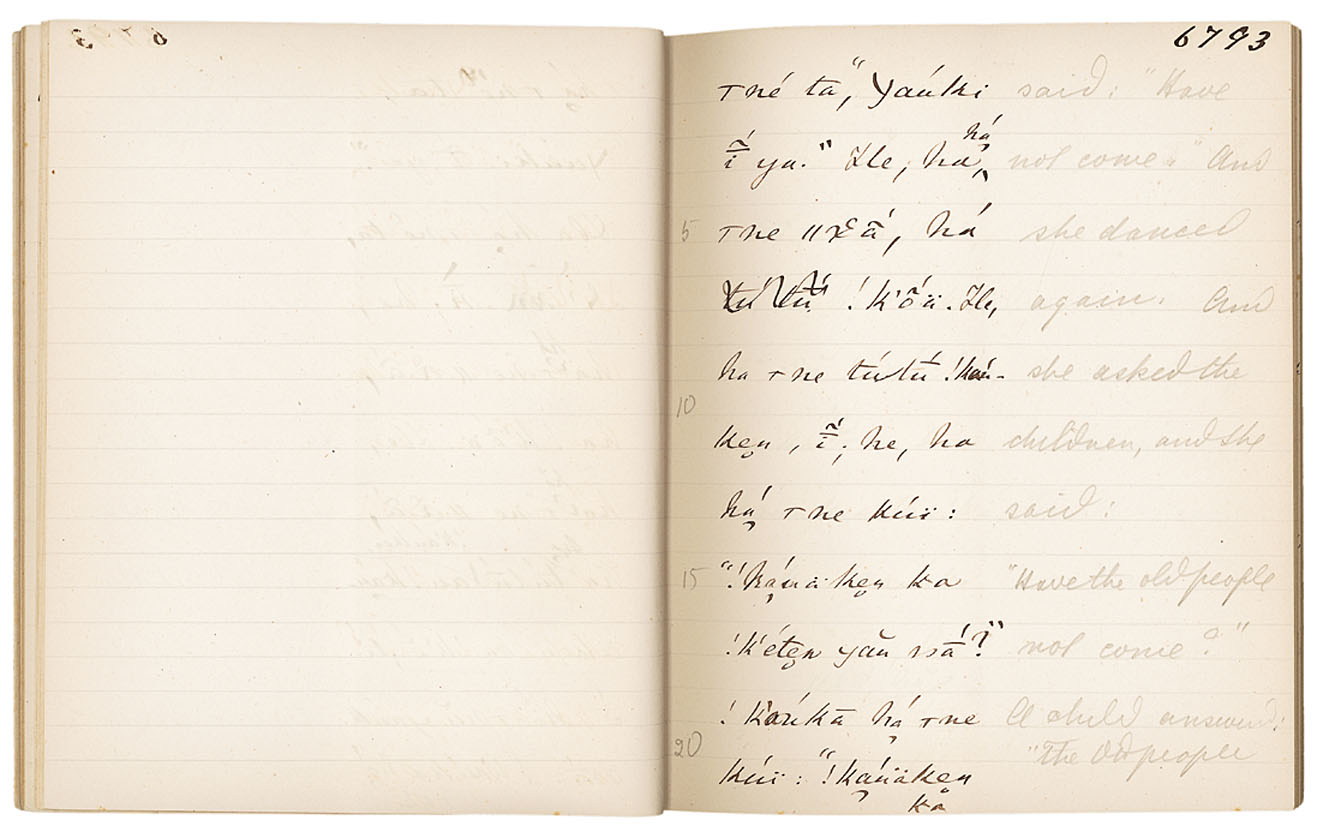 6793
т né ta", yaúki said: "Have
ĩ́ ya." He, ha há not come." And
5 т ne ǁχã́, há she danced
!k'ṍä. He, again. And
ha т ne túťū́ !kaú- she asked the
10
ken, ĩ́; he, ha children, and she
há т ne kúï: said:
15 "!káuäken ka "Have the old people
!k'éten yaū ssā́?" not come?"
!kaúkā há т ne A child answered:
20 kúï: "!káuäken "The old people
ka